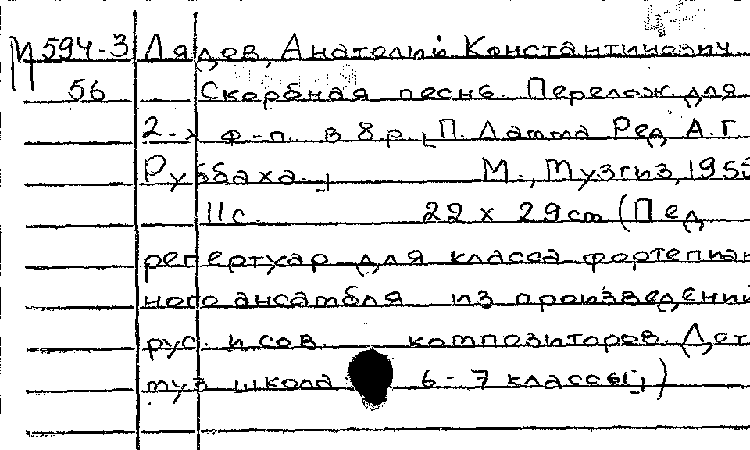 М 594-3 Лядов, Анатолий Константинович
56 Скорбная песнь. Перелож. для
2-х ф-п. в 8 р. [П. Ламма Ред. А. Г.
Руббаха.] М., Музгиз, 1955
11 с. 22 x 29 см (Пед.
репертуар для класса фортепиан
ного ансамбля из произведений
рус. и сов. композиторов. [Дет.
муз. школа 6-7 классы])